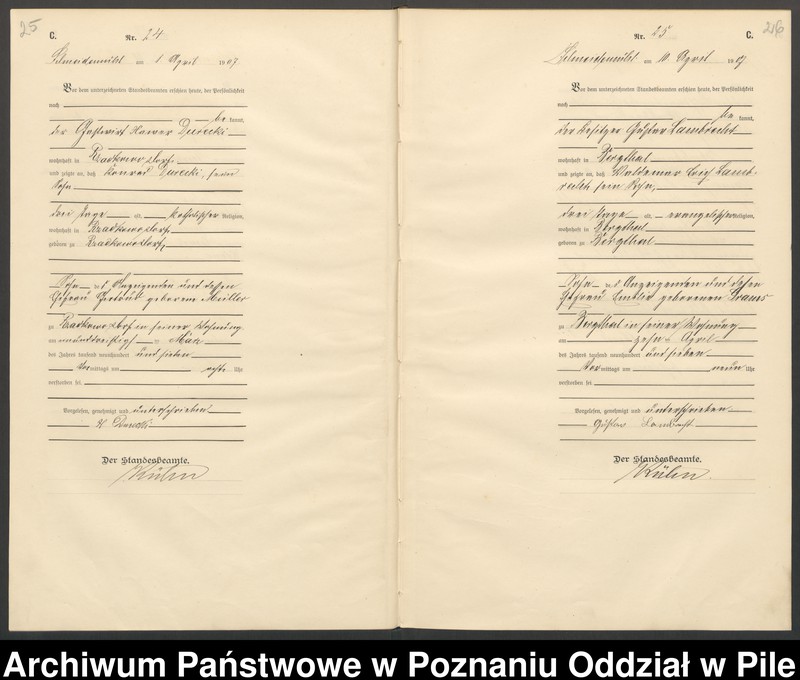 25
C.
Nr. 24
Schneidemühl am 1 April 1907
Vor dem unterzeichneten Standesbeamten erschien heute, der Persönlichkeit
nach
be kannt,
der Gastwirt Xaver Durecki
wohnhaft in Radkowo Dorf
und zeigte an, daß Konrad Durecki, sein
Sohn
drei Tage alt, katholischer Religion,
wohnhaft in
geboren zu
Sohn des Anzeigenden und dessen
Ehefrau geborene Müller
zu in seiner Wohnung
am ten März
des Jahres tausend neunhundert und sieben
Vor mittags um acht Uhr
verstorben sei
Vorgelesen, genehmigt und unterschrieben
X Durecki
Der Standesbeamte.
Kühn
C. 26
Nr. 25
Schneidemühl am 10 April 1907
Vor dem unterzeichneten Standesbeamten erschien heute, der Persönlichkeit
nach
be kannt,
der Besitzer Gustav Lambrecht
wohnhaft in Bergthal
und zeigte an, daß Waldemar Erich Lamb-
recht sein Sohn,
drei Tage alt, evangelischer Religion,
wohnhaft in Bergthal
geboren zu Bergthal
Sohn des Anzeigenden und dessen
Ehefrau Emilie geborenen
zu Bergthal in seiner Wohnung
am zehn ten April
des Jahres tausend neunhundert und sieben
Vor mittags um neun Uhr
verstorben sei
Vorgelesen, genehmigt und unterschrieben
Gustav Lambrecht
Der Standesbeamte.
Kühn
Archiwum Państwowe w Poznaniu Oddział w Pile